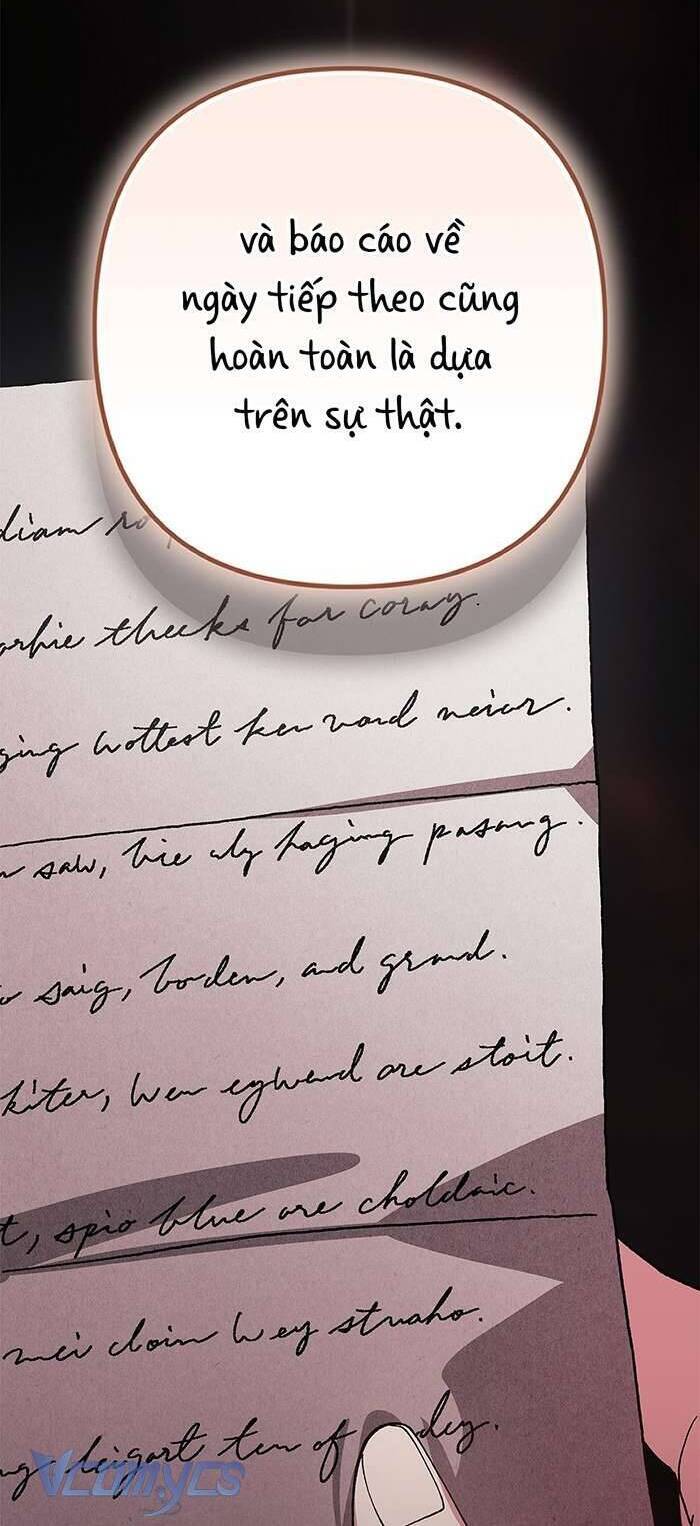 và báo cáo về
ngày tiếp theo cũng
hoàn toàn là dựa
trên sự thật.
diam
theeks for coray.
wottest ken vond neior.
saw, hie uly haging pasang.
saig, borden, and grand.
kiter, wen eywend are stoit.
t, spio blue are choldaic.
mei cloin wey struaho.
heigart ten of dey.
Vcomycs